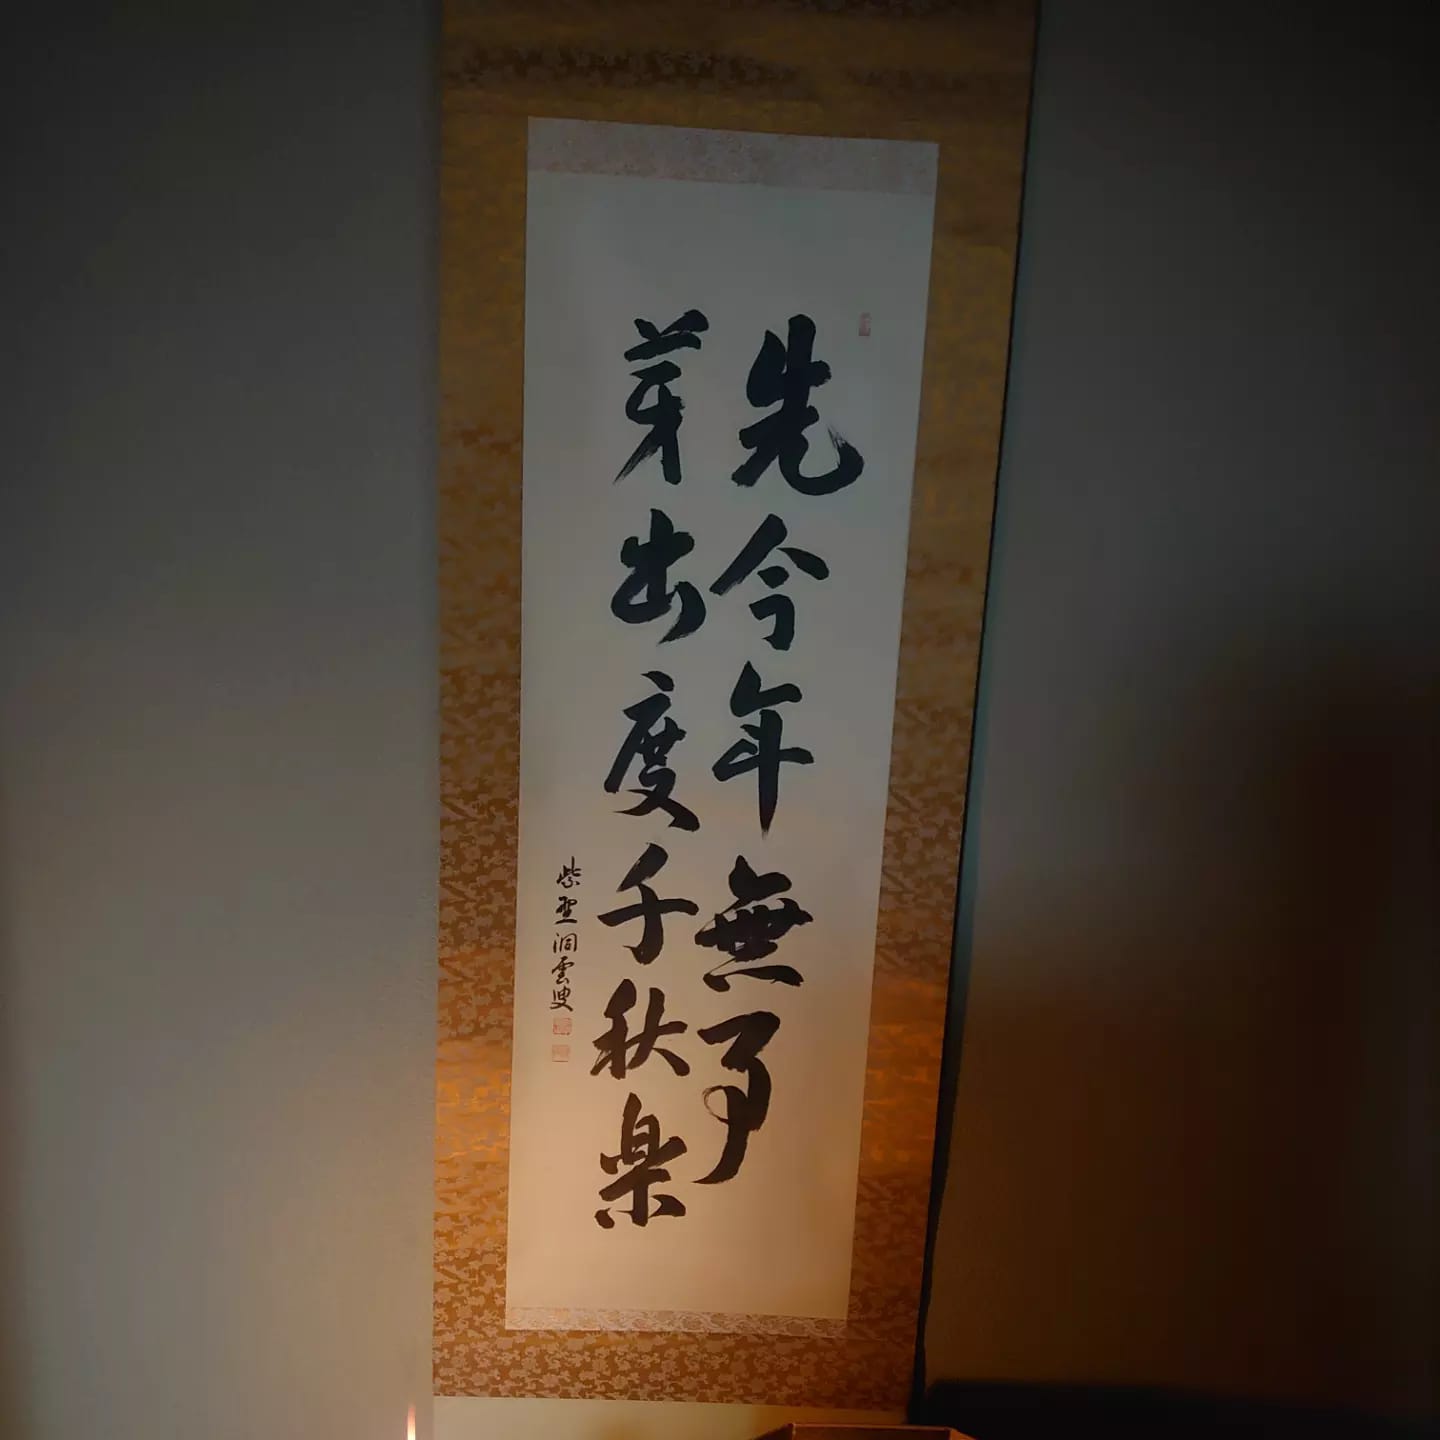 先今年無事
芽出度千秋楽
紫野洞雲叟